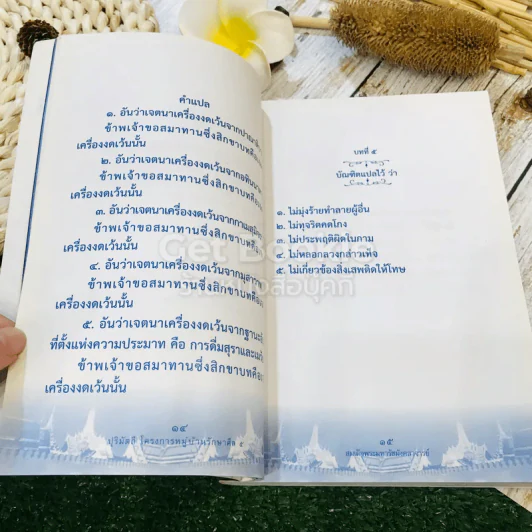 คำแปล
๑. อันว่าเจตนาเครื่องงดเว้นจาก
ข้าพเจ้าขอสมาทานซึ่งสิกขาบทคือ
เครื่องงดเว้นนั้น
๒. อันว่าเจตนาเครื่องงดเว้นจาก
ข้าพเจ้าขอสมาทานซึ่งสิกขาบทคือ
เครื่องงดเว้นนั้น
๓. อันว่าเจตนาเครื่องงดเว้นจาก
ข้าพเจ้าขอสมาทานซึ่งสิกขาบทคือ
เครื่องงดเว้นนั้น
๔. อันว่าเจตนาเครื่องงดเว้นจาก
ข้าพเจ้าขอสมาทานซึ่งสิกขาบทคือ
เครื่องงดเว้นนั้น
๕. อันว่าเจตนาเครื่องงดเว้นจาก
ที่ตั้งแห่งความประมาท คือ การดื่มสุราและ
ข้าพเจ้าขอสมาทานซึ่งสิกขาบทคือ
เครื่องงดเว้นนั้น
๑๔
โครงการหมู่บ้านรักษาศีล ๕
บทที่ ๕
บัณฑิตแปลไว้ ว่า
๑. ไม่มุ่งร้ายทำลายผู้อื่น
๒. ไม่ทุจริตคดโกง
๓. ไม่ประพฤติผิดในกาม
๔. ไม่หลอกลวงกล่าวเท็จ
๕. ไม่เกี่ยวข้องสิ่งเสพติดให้โทษ
๑๕